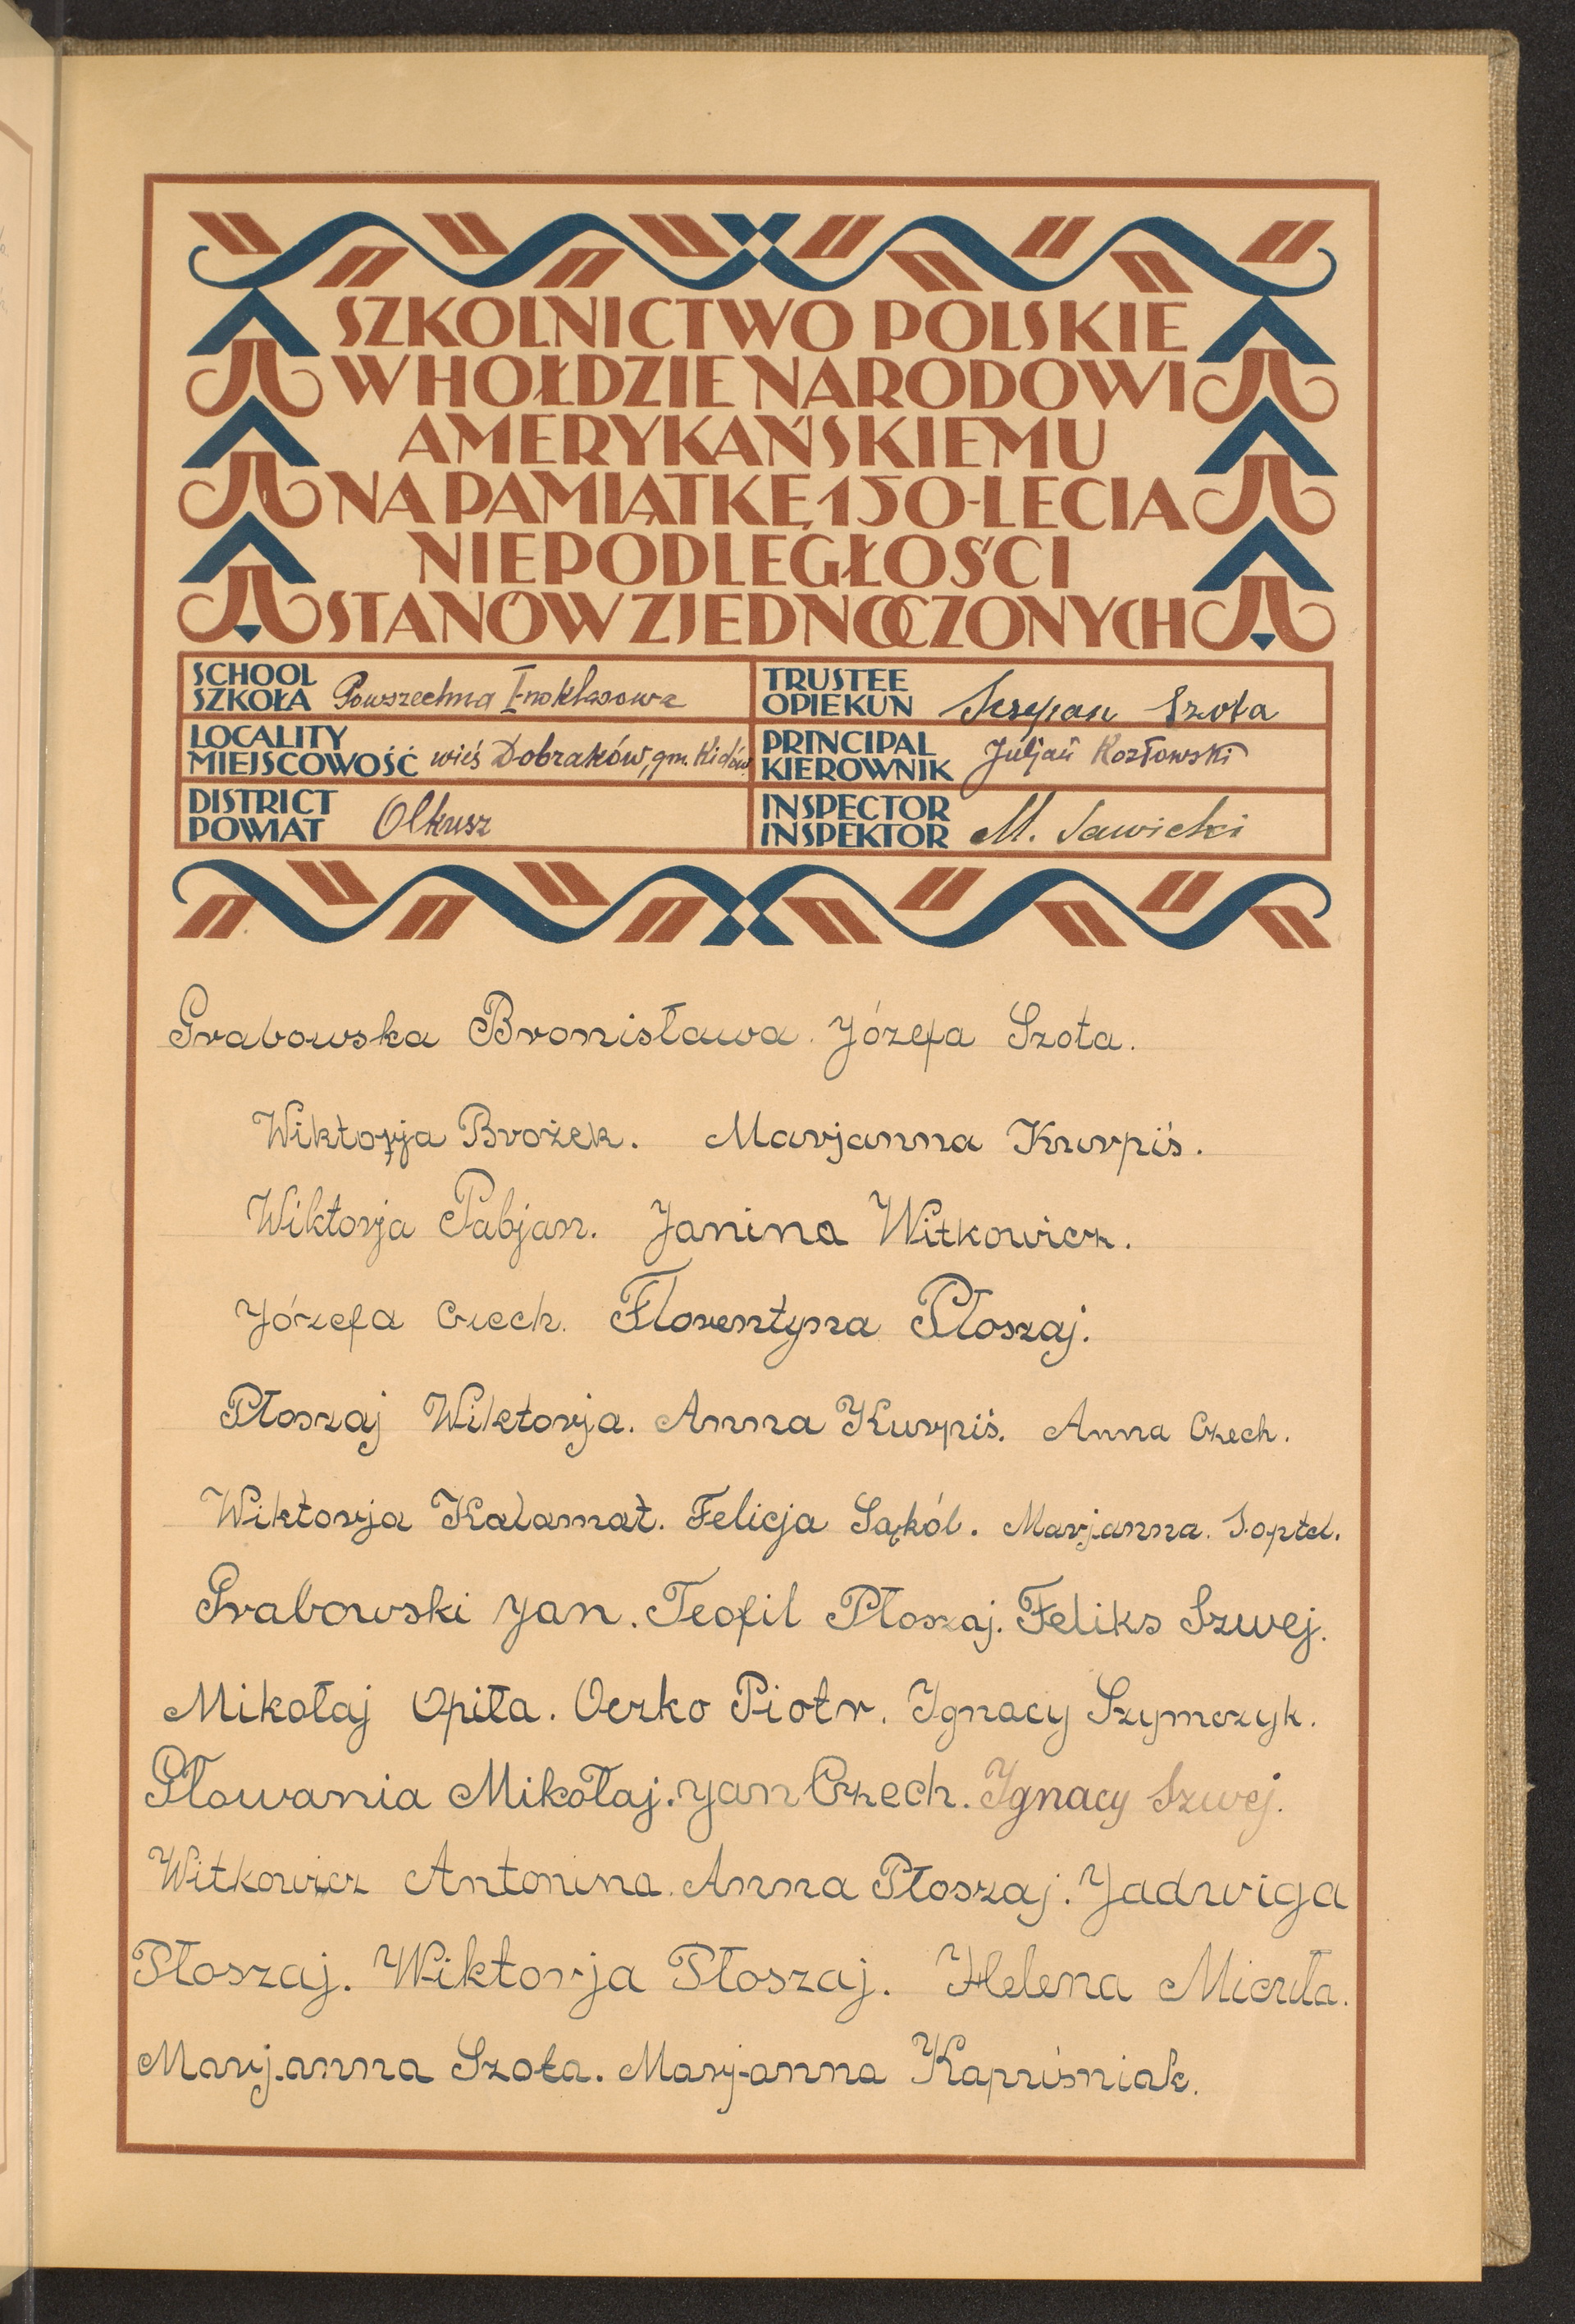 SZKOLNICTWO POLSKIE
W HOŁDZIE NARODOWI
AMERYKAŃSKIEMU
NA PAMIĄTKĘ 150-LECIA
NIEPODLEGŁOŚCI
STANÓW ZJEDNOCZONYCH
SCHOOL
SZKOŁA Powszechna I-no klasowa
TRUSTEE
OPIEKUN Szczepan Szota
LOCALITY
MIEJSCOWOŚĆ wieś Dobraków, gm. Kidów
PRINCIPAL
KIEROWNIK Juljan Kozłowski
DISTRICT
POWIAT Olkusz
INSPECTOR
INSPEKTOR M. Sawicki
Grabowska Bronisława. Józefa Szota.
Wiktorja Brożek. Marjanna Kurpiś.
Wiktorja Pabjan. Janina Witkowicz.
Józefa Czech. Florentyna Płoszaj.
Płoszaj Wiktorja. Anna Kurpiś. Anna Czech.
Wiktorja Kalamat. Felicja Sąkól. Marjanna.
Grabowski Jan. Teofil Płoszaj. Feliks Szwej.
Mikołaj Opiła. Oczko Piotr. Ignacy Szymczyk.
Głowania Mikołaj. Jan Czech. Ignacy Szwej.
Witkowicz Antonina. Anna Płoszaj. Jadwiga
Płoszaj. Wiktorja Płoszaj. Helena Micuła.
Marjanna Szota. Marjanna Kapuśniak.